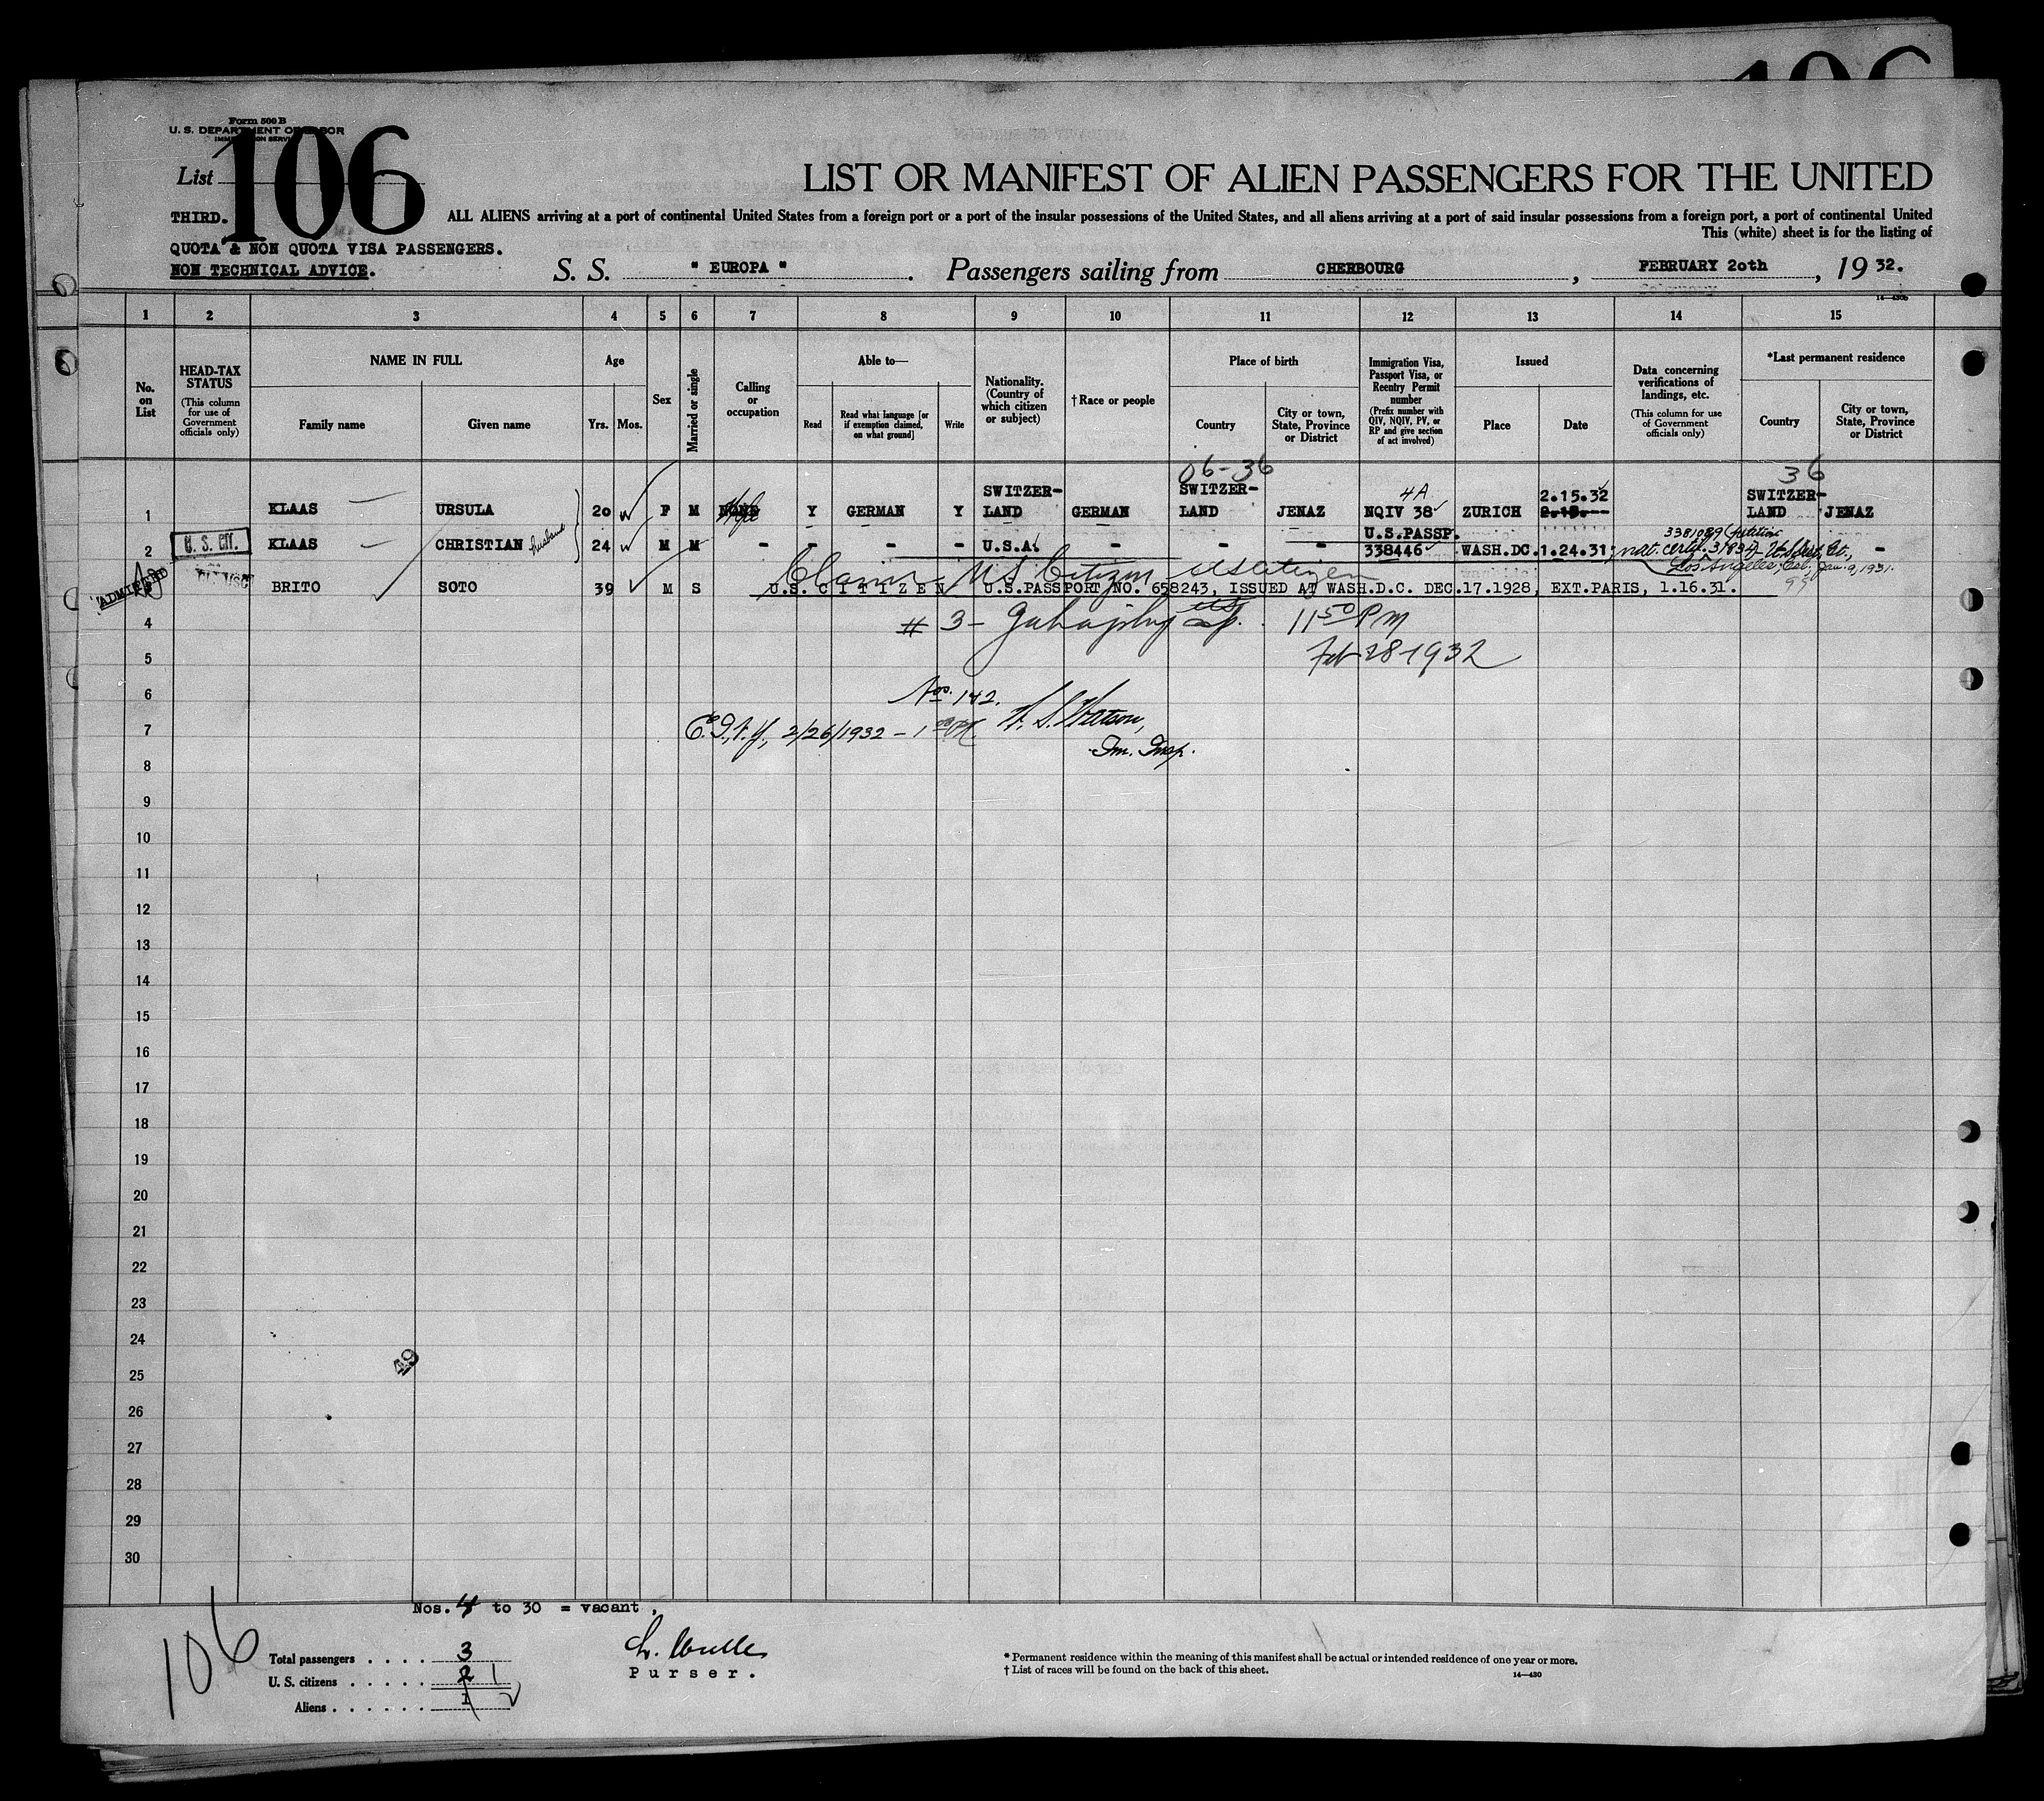 106
Form 500 B
U. S. DEPARTMENT OF LABOR
IMMIGRATION SERVICE
List 106
LIST OR MANIFEST OF ALIEN PASSENGERS FOR THE UNITED
THIRD.
ALL ALIENS arriving at a port of continental United States from a foreign port or a port of the insular possessions of the United States, and all aliens arriving at a port of said insular possessions from a foreign port, a port of continental United
This (white) sheet is for the listing of
QUOTA & NON QUOTA VISA PASSENGERS.
NON TECHNICAL ADVICE.
S. S. " EUROPA ". Passengers sailing from CHERBOURG, FEBRUARY 20th, 19 32.
14—430b
1 2 3 4 5 6 7 8 9 10 11 12 13 14 15
No. on List
HEAD-TAX STATUS (This column for use of Government officials only)
NAME IN FULL
Family name
Given name
Age
Yrs.
Mos.
Sex
Married or single
Calling or occupation
Able to—
Read
Read what language [or if exemption claimed, on what ground]
Write
Nationality. (Country of which citizen or subject)
† Race or people
Place of birth
Country
City or town, State, Province or District
Immigration Visa, Passport Visa, or Reentry Permit number (Prefix number with QIV, NQIV, PV, or RP and give section of act involved)
Issued
Place
Date
Data concerning verifications of landings, etc. (This column for use of Government officials only)
*Last permanent residence
Country
City or town, State, Province or District
06-36 36
1 KLAAS URSULA 20 F M NONE Wife Y GERMAN Y SWITZER-LAND GERMAN SWITZER-LAND JENAZ 4A NQIV 38 ZURICH 2.15.32 SWITZER-LAND JENAZ
2 U. S. CIT. KLAAS CHRISTIAN husband 24 M M - - - - U.S.A. - - - U.S.PASSP. 338446 WASH.DC. 1.24.31 -
nat. certif. Los Angeles, Cal. Jan. 9, 1931.
Claims U.S. Citizen US Citizen
ADMITTED
BRITO SOTO 39 M S U.S. C I T I Z E N U.S.PASSPORT NO. 658243, ISSUED AT WASH.D.C. DEC.17.1928, EXT.PARIS, 1.16.31.
99
4 # 3 - 11 50 PM
5 Feb 28-1932
6 Nos. 1 & 2.
7 2/26/1932 - Im. Insp.
8
9
10
11
12
13
14
15
16
17
18
19
20
21
22
23
24
25
26
27
28
29
30
49
Nos. 4 to 30 = vacant,
106
Total passengers . . . . 3
U. S. citizens . . . . . 2 1
Aliens . . . . . . 1 2
Purser.
* Permanent residence within the meaning of this manifest shall be actual or intended residence of one year or more.
† List of races will be found on the back of this sheet.
14—430